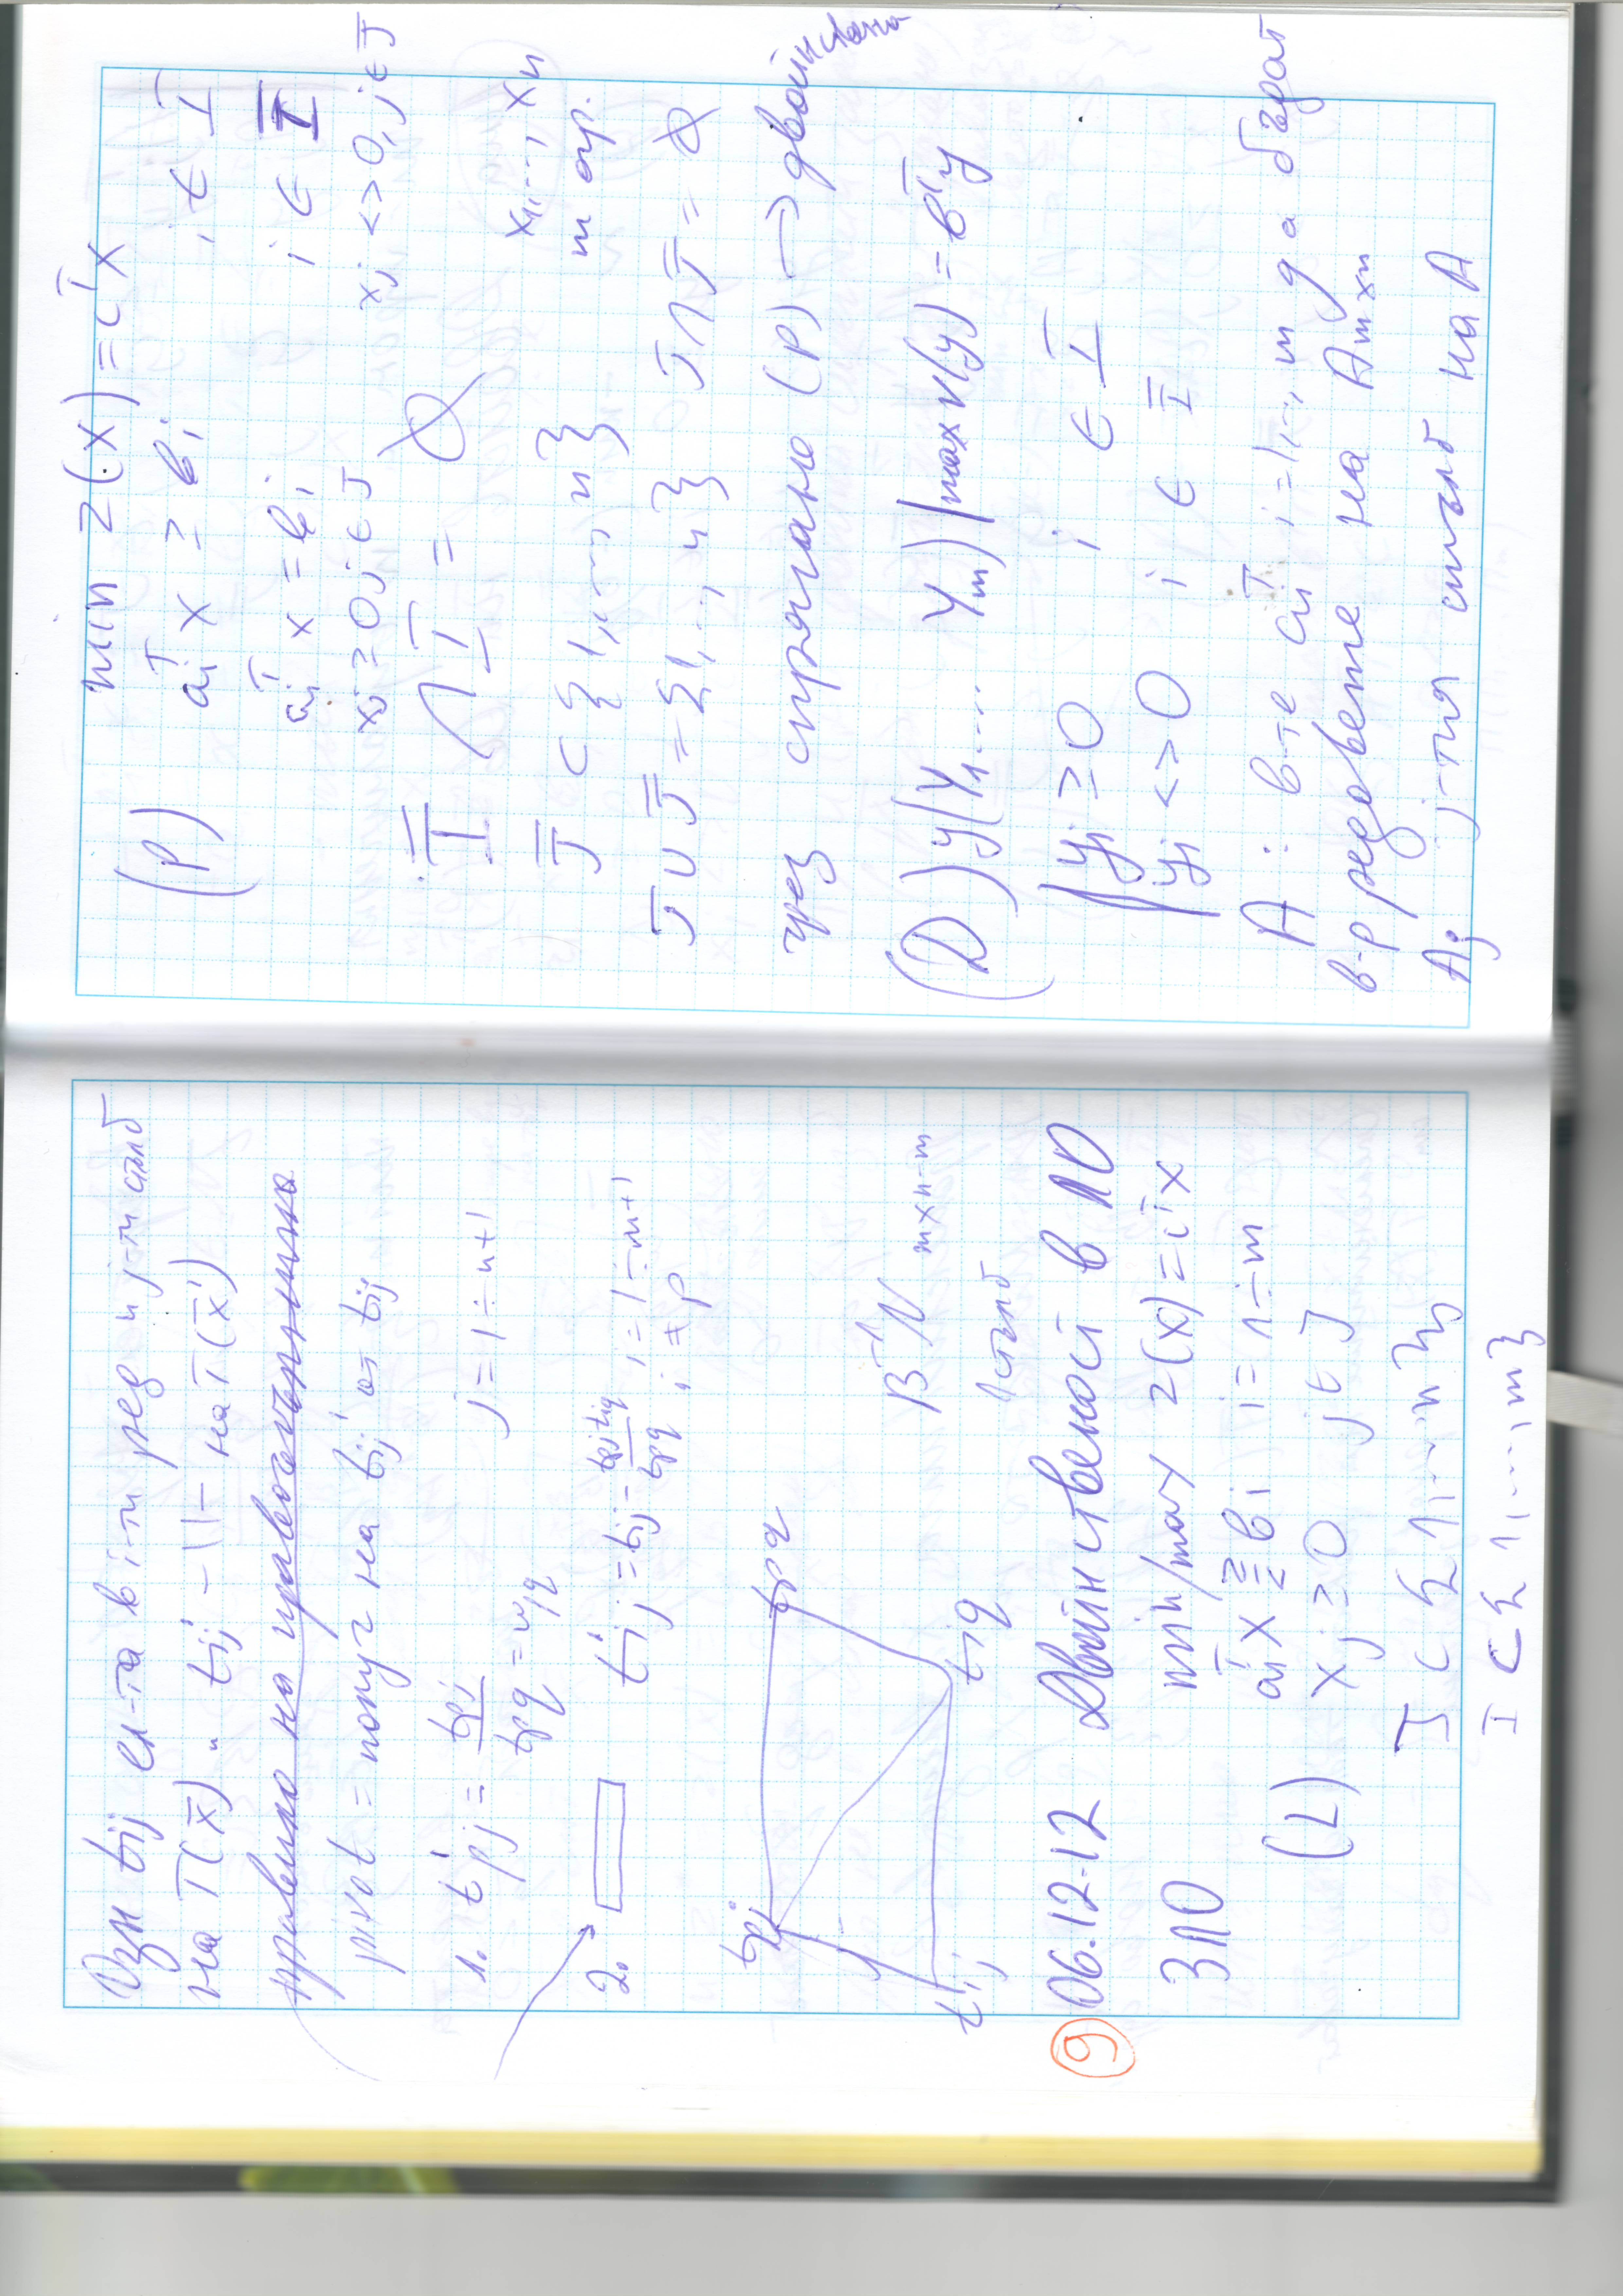 Озн tij ел-та в i-ти ред и j-ти стълб
на T(x̄). " tij' —||— на T(x̄')
правило на правоъгълника
pivot = получ на tij' от tij
1. t'pj = tpj/tpq = w/q j = 1÷n+1
2. t'ij = tij - tpj tiq/tpq i = 1÷m+1
, i ≠ p
tpj tpq
tij tiq
B⁻¹N m×n-m
1 стълб
⑨ 06.12.12 Двойнственост в ЛО
ЗЛО min/max z(x) = cᵀx
aiᵀx ⋛ bi i = 1÷m
(L) xj ≥ 0 j ∈ J
J ⊂ {1,...,n}
I ⊂ {1,...,m}
(P) min z(x) = cᵀx
aiᵀx ≥ bi , i ∈ I
aiᵀx = bi i ∈ Ī
xj ≥ 0 j ∈ J xj <> 0, j ∈ J̄
Ī ∩ I = ∅
J̄ ⊂ {1,...,n} x1,..., xn
m огр.
J ∪ J̄ = {1,...,n} J ∩ J̄ = ∅
чрез спрягане (P) → двойнствена
(D) y(y1.... ym) | max v(y) = bᵀy
yi ≥ 0 i ∈ I
yi <> 0 i ∈ Ī
A : в-те aiᵀ i = 1,..., m да бъдат
в-р редовете на Am×n
Aj j-тия стълб на A